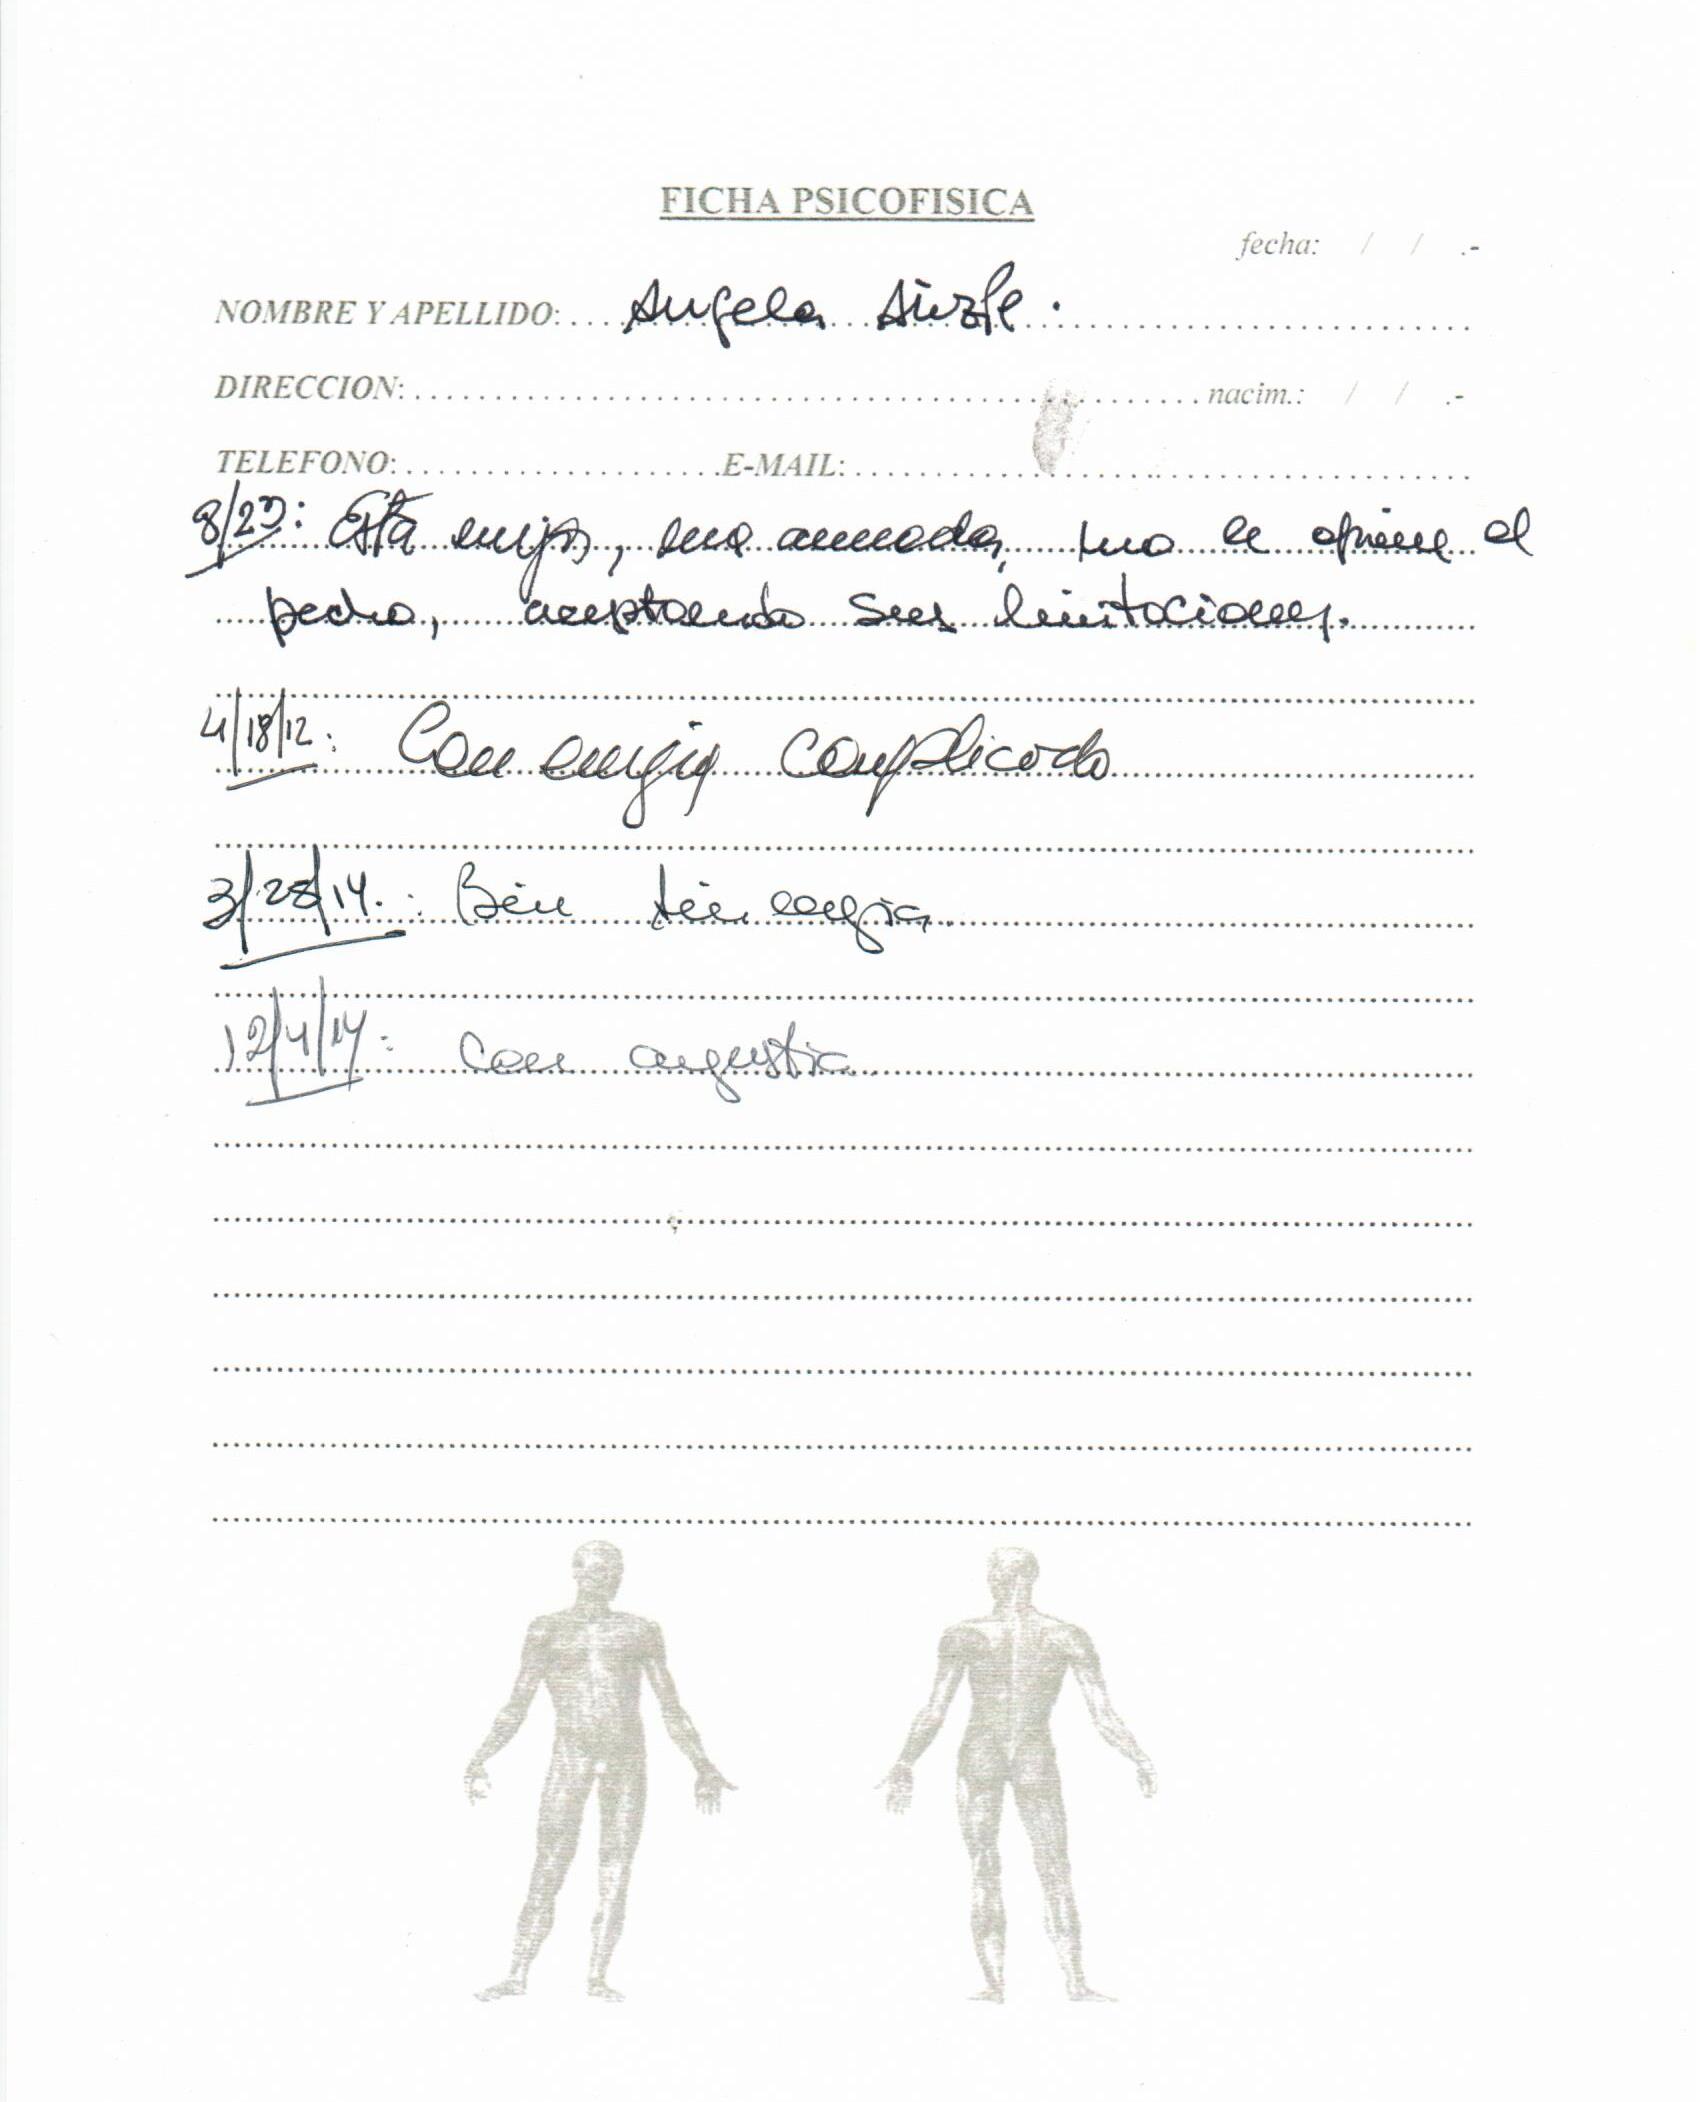 FICHA PSICOFISICA
fecha: / / .-
NOMBRE Y APELLIDO: Angela
DIRECCION: nacim.: / / .-
TELEFONO: E-MAIL:
Está mejor, no le oprime el
pecho, aceptando sus limitaciones.
4/18/12: Con energía complicado
3/28/14.: Bien sin energía.
12/4/14: Con angustia.